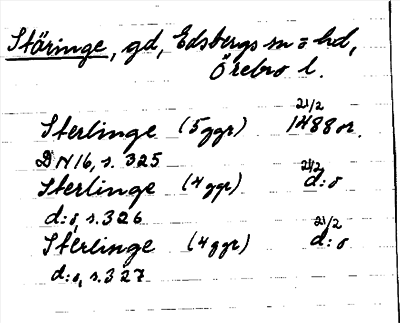 Stäringe, gd, Edsbergs sn o hd,
Örebro l.
21/2
Sterlinge (5 ggr) 1488 or.
DN 16, s. 325
21/2
Sterlinge (4 ggr) d:o
d:o, s. 326
21/2
Sterlinge (4 ggr) d:o
d:o, s. 327